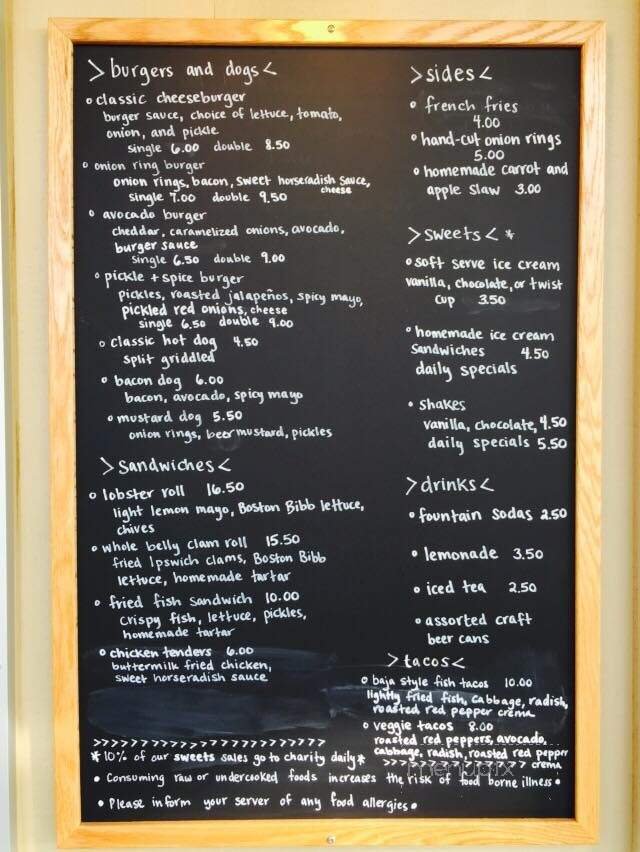 >burgers and dogs<
classic cheeseburger
burger sauce, choice of lettuce, tomato,
onion, and pickle
single 6.00 double 8.50
onion ring burger
onion rings, bacon, sweet horseradish sauce,
cheese
single 7.00 double 9.50
avocado burger
cheddar, caramelized onions, avocado,
burger sauce
single 6.50 double 9.00
pickle + spice burger
pickles, roasted jalapeños, spicy mayo,
pickled red onions, cheese
single 6.50 double 9.00
classic hot dog 4.50
split griddled
bacon dog 6.00
bacon, avocado, spicy mayo
mustard dog 5.50
onion rings, beer mustard, pickles
>sandwiches<
lobster roll 16.50
light lemon mayo, Boston Bibb lettuce,
chives
whole belly clam roll 15.50
fried Ipswich clams, Boston Bibb
lettuce, homemade tartar
fried fish sandwich 10.00
crispy fish, lettuce, pickles,
homemade tartar
chicken tenders 6.00
buttermilk fried chicken,
sweet horseradish sauce
>sides<
french fries
4.00
hand-cut onion rings
5.00
homemade carrot and
apple slaw 3.00
>sweets<*
soft serve ice cream
vanilla, chocolate, or twist
cup 3.50
homemade ice cream
sandwiches 4.50
daily specials
shakes
vanilla, chocolate, 4.50
daily specials 5.50
>drinks<
fountain sodas 2.50
lemonade 3.50
iced tea 2.50
assorted craft
beer cans
>tacos<
baja style fish tacos 10.00
lightly fried fish, cabbage, radish,
roasted red pepper crema
veggie tacos 8.00
roasted red peppers, avocado,
cabbage, radish, roasted red pepper
crema
*10% of our sweets sales go to charity daily*
• Consuming raw or undercooked foods increases the risk of food borne illness •
• Please inform your server of any food allergies •
menupix